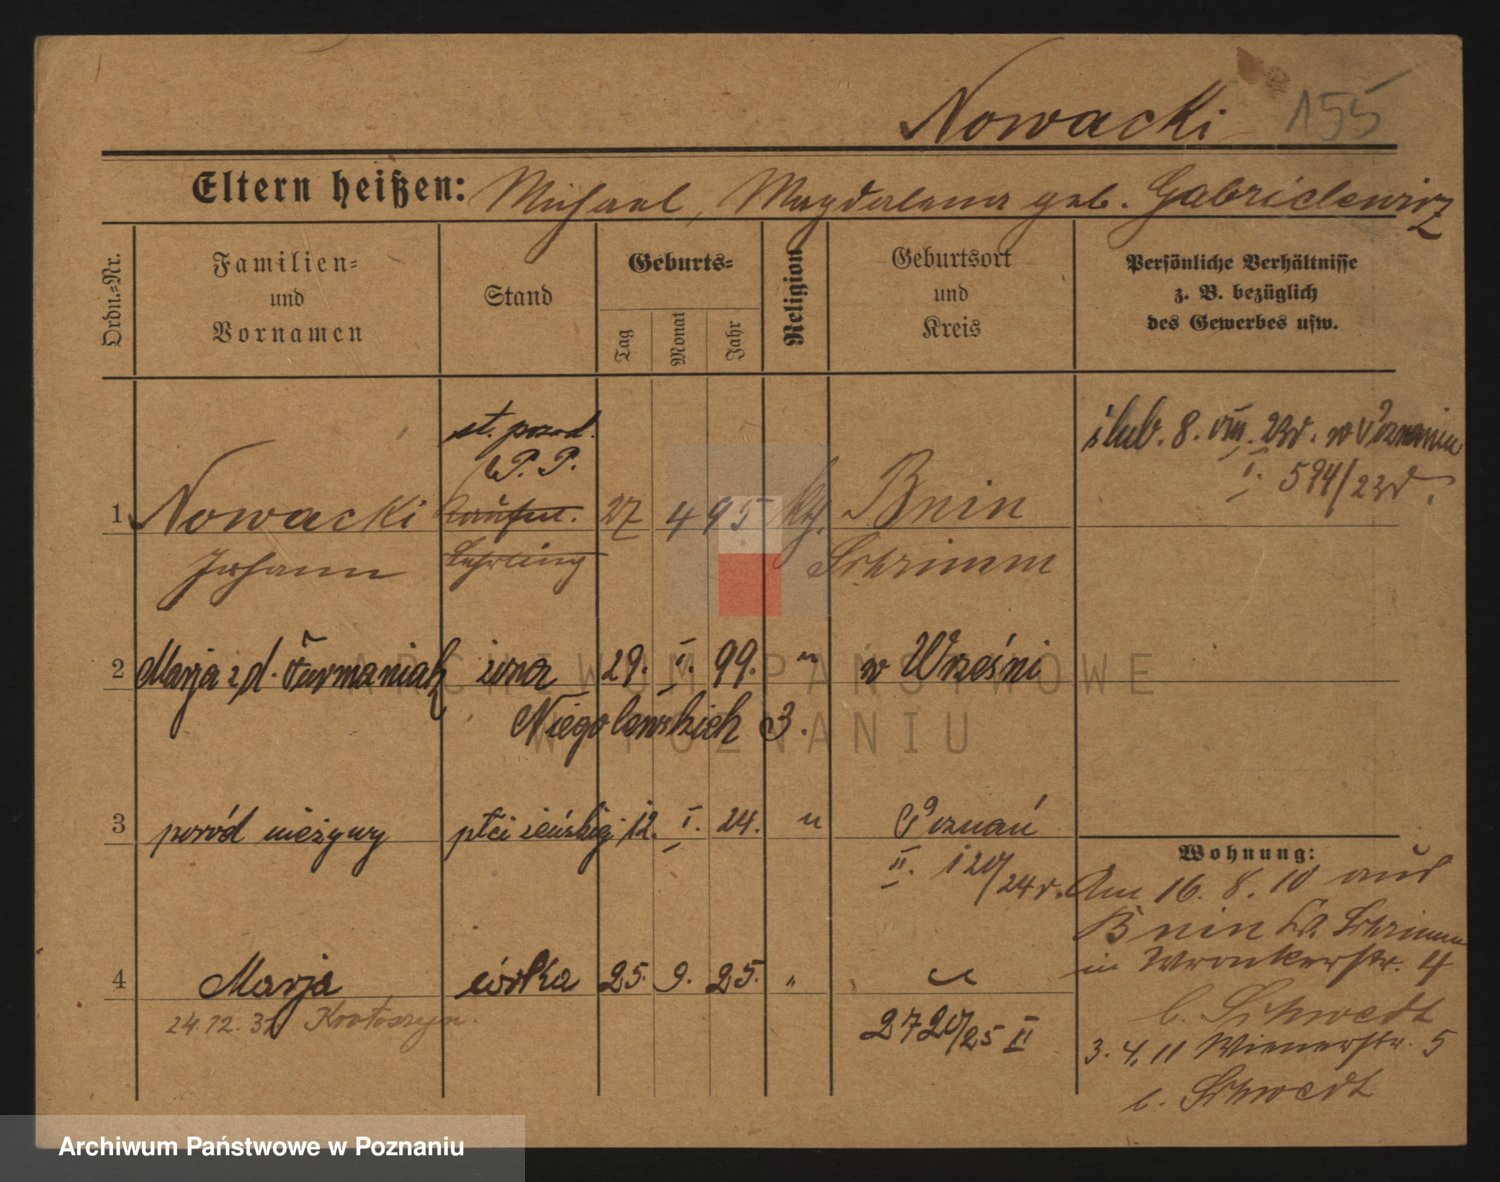 Nowacki 155
Eltern heißen: Michael, Magdalena geb. Gabrielewicz
Ordn.=Nr.
Familien=
und
Vornamen
Stand
Geburts=
Tag
Monat
Jahr
Religion
Geburtsort
und
Kreis
Persönliche Verhältnisse
z. B. bezüglich
des Gewerbes usw.
ślub. 8. VIII. 23r. w Poznaniu
I. 594/23r.
st. pozad.
P. P.
1 Nowacki Kaufm. 27 4 95 kg. Bnin
Johann Lehrling Schrimm
2 Marja z d. Furmaniak żona 29. I. 99. " w Wrześni
Niegolewskich 3.
3 poród nieżywy płci żeńskiej 12. I. 24. " Poznań
II. 120/24r.
4 Marja córka 25. 9. 25. " "
24.12.31 Krotoszyn
2720/25 II
Wohnung:
Am 16. 8. 10 aus
Bnin Kr. Schrimm
in Wronkerstr. 4
b. Schwedt
3. 4. 11 Wienerstr. 5
b. Schwedt
ARCHIWUM PAŃSTWOWE
W POZNANIU
Archiwum Państwowe w Poznaniu